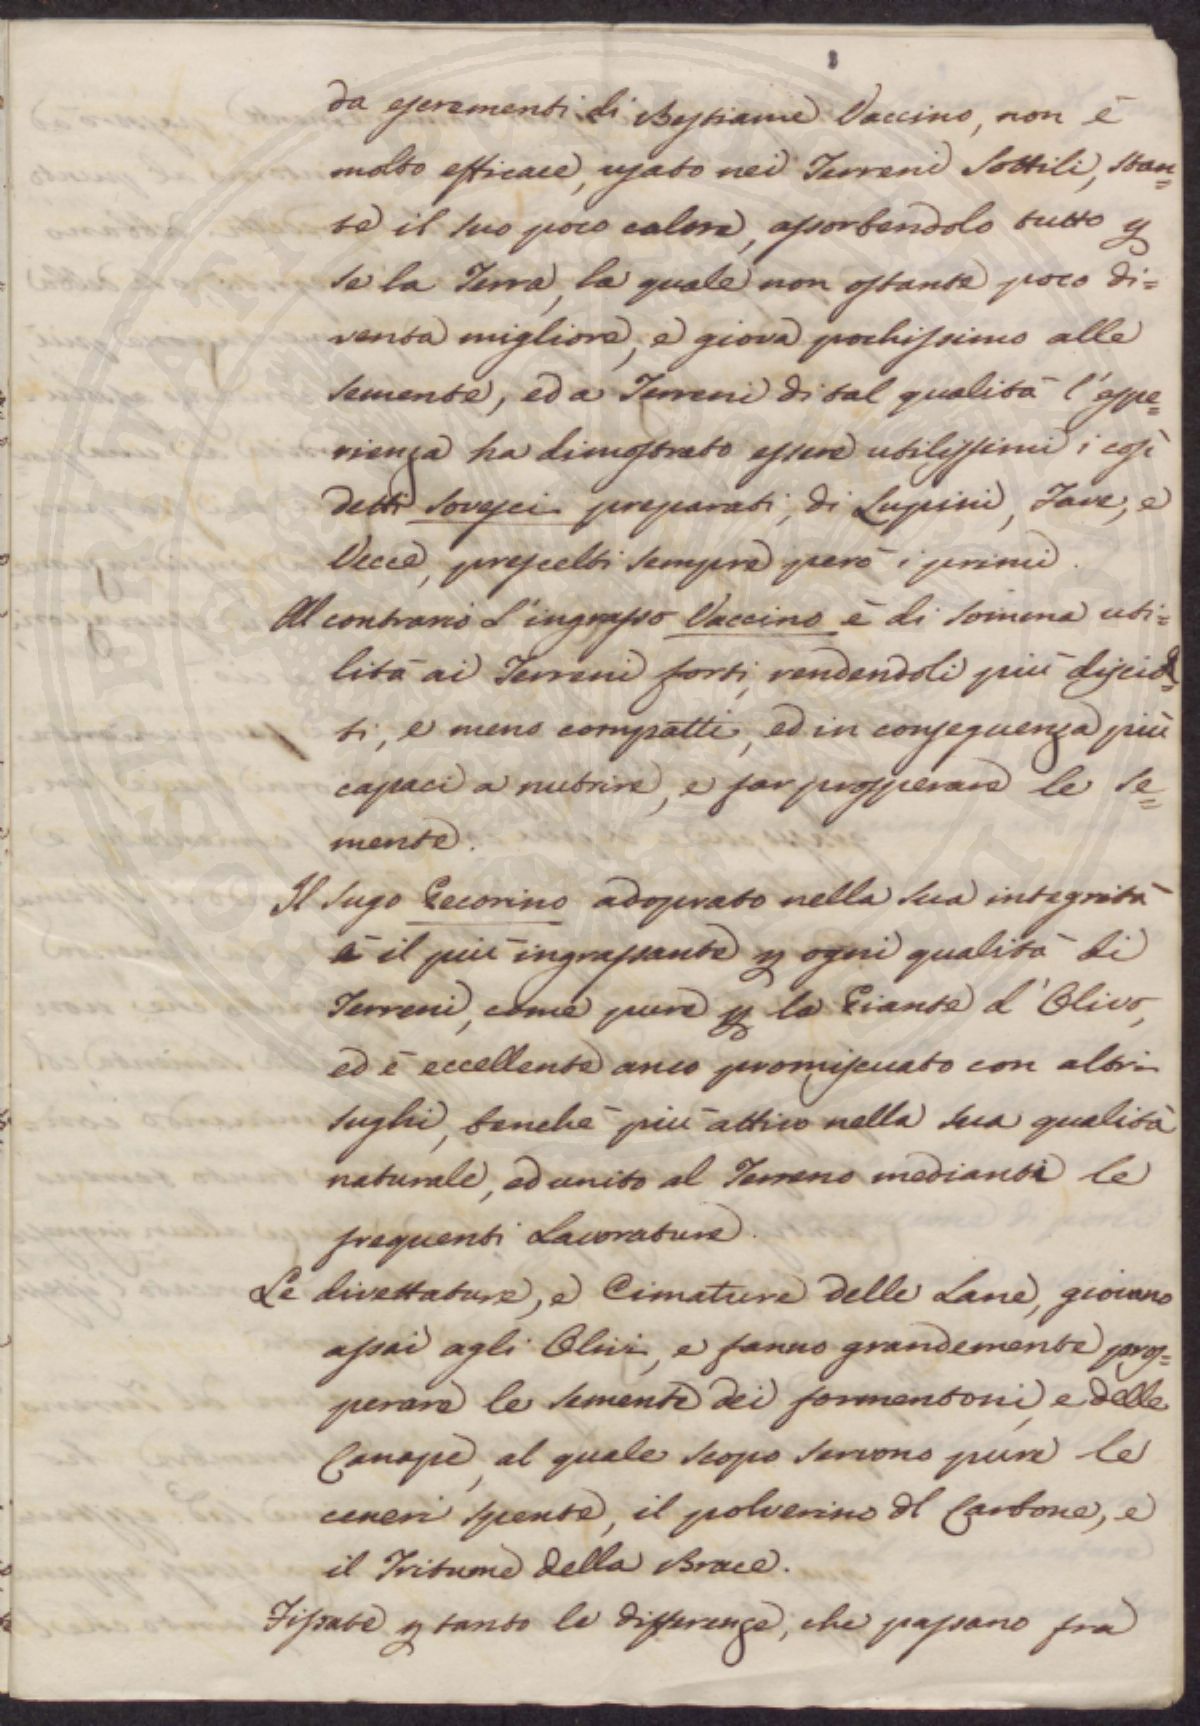 da escrementi di Bestiame Vaccino, non è
molto efficace, usato nei Terreni Sottili, stan=
te il suo poco calore, assorbendolo tutto p
se la Terra, la quale non ostante poco di=
venta migliore, e giova pochissimo alle
semente, ed a Terreni di tal qualità l'espe=
rienza ha dimostrato essere utilissimi i così
detti Sovesci preparati, di Lupini, Fave, e
Vecce, prescelti sempre però i primi.
Al contrario l'ingrasso Vaccino è di somma uti=
lità ai Terreni forti, rendendoli più disciol=
ti, e meno compatti, ed in conseguenza più
capaci a nutrire, e far prosperare le se=
mente.
Il sugo Pecorino adoprato nella sua integrità
è il più ingrassante p ogni qualità di
Terreni, come pure p le Piante d'Olivo,
ed è eccellente anco promiscuato con altri
sughi, benchè più attivo nella sua qualità
naturale, ed unito al Terreno mediante le
frequenti Lavorature.
Le divettature, e Cimature delle Lane, giovano
assai agli Olivi, e fanno grandemente pros=
perare le semente dei formentoni, e delle
Canape, al quale scopo servono pure le
ceneri spente, il polverino del Carbone, e
il Tritume della Brace.
Fissate p tanto le differenze, che passano fra